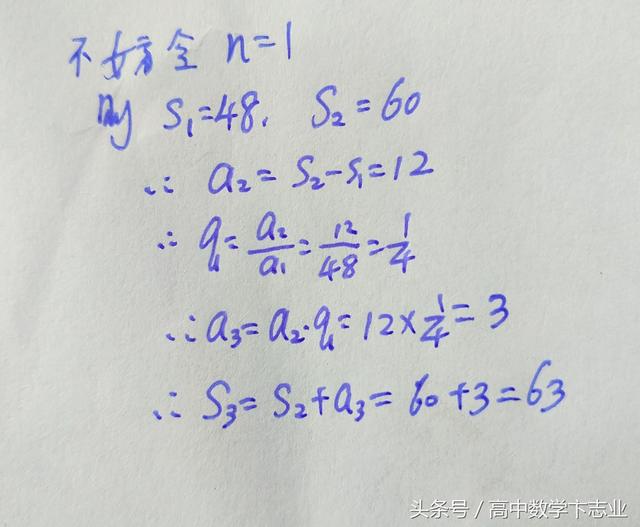 不妨令 n=1
则 S₁=48, S₂=60
∴ a₂=S₂-S₁=12
∴ q=a₂/a₁=12/48=1/4
∴ a₃=a₂·q=12×1/4=3
∴ S₃=S₂+a₃=60+3=63
头条号 / 高中数学卞志业